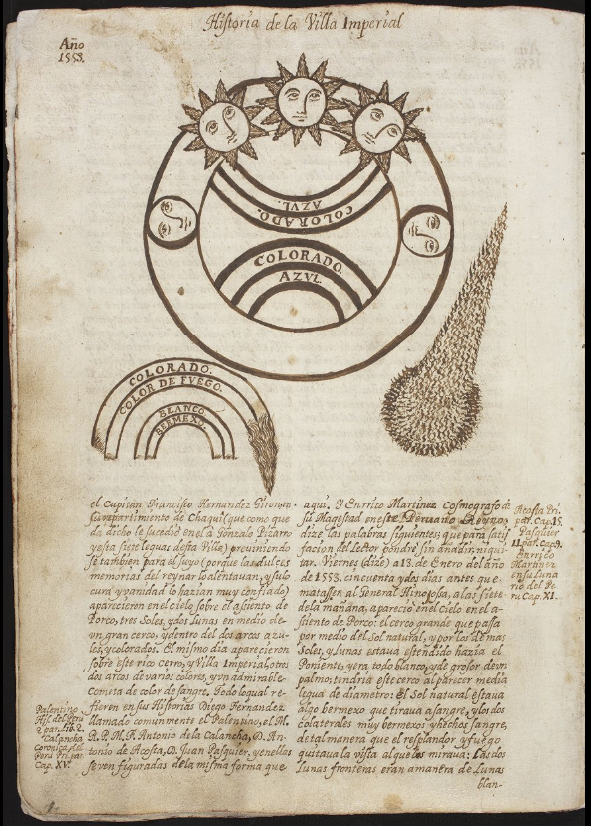 Historia de la Villa Imperial
Año
1553.
COLORADO.
AZVL.
COLORADO.
AZVL.
COLORADO.
COLOR DE FVEGO.
BLANCO.
BERMEXO.
el Capitan Francisco Hernandez Giron
su repartimiento de Chaqui (que como que
da dicho le sucedio en el a Gonzalo Pizarro
y esta siete leguas desta Villa) previniendo
se tambien para el suyo (porque las dulces
memorias del reynar lo alentauan, y su lo
cura y vanidad lo hazian muy confiado)
aparecieron en el cielo sobre el asiento de
Porco, tres Soles, y dos Lunas en medio de
vn gran cerco, y dentro del dos arcos azu-
les, y colorados. El mismo dia aparecieron
sobre este rico cerro, y Villa Imperial, otros
dos arcos de varios colores, y vn admirable
Cometa de color de sangre. Todo lo qual re-
fieren en sus Historias Diego Fernandez
llamado comunmente el Palentino, el M.
R. P. M. F. Antonio de la Calancha, D. An-
tonio de Acosta, D. Juan Pasquier, y en ellas
se ven figuradas de la misma forma que
Palentino
His. del Peru
2 par. lib. 2.
Calancha
Coronica del
Peru Pri. par.
Cap. XV.
aqui. Y Enrrico Martinez Cosmografo de
su Magestad en este Peruano Reyno,
dize las palabras siguientes que para satis
facion del Lector pondré, sin añadir, ni qui-
tar. Viernes (dize) a 13. de Enero del año
de 1553. cincuenta y dos dias antes que
matassen al General Hinojosa, a las siete
de la mañana, aparecio en el Cielo en el a-
siento de Porco: el cerco grande que passa
por medio del Sol natural, y por los demas
Soles, y Lunas estaua estendido hazia el
Poniente, y era todo blanco, y de grosor de vn
palmo; tindria este cerco al parecer media
legua de diametro: el Sol natural estaua
algo bermexo que tiraua a sangre, y los dos
colaterales muy bermexos y hechos sangre,
de tal manera que el resplandor y fuego
quitaua la vista a los que los miraua: Las dos
Lunas fronteras eran a manera de Lunas
blan-
Acosta Pri.
par. Cap. 15.
Pasquier
11. par. Cap. 9.
Enrrico
Martinez
en su Luna
rio del Pe-
ru Cap. XI.